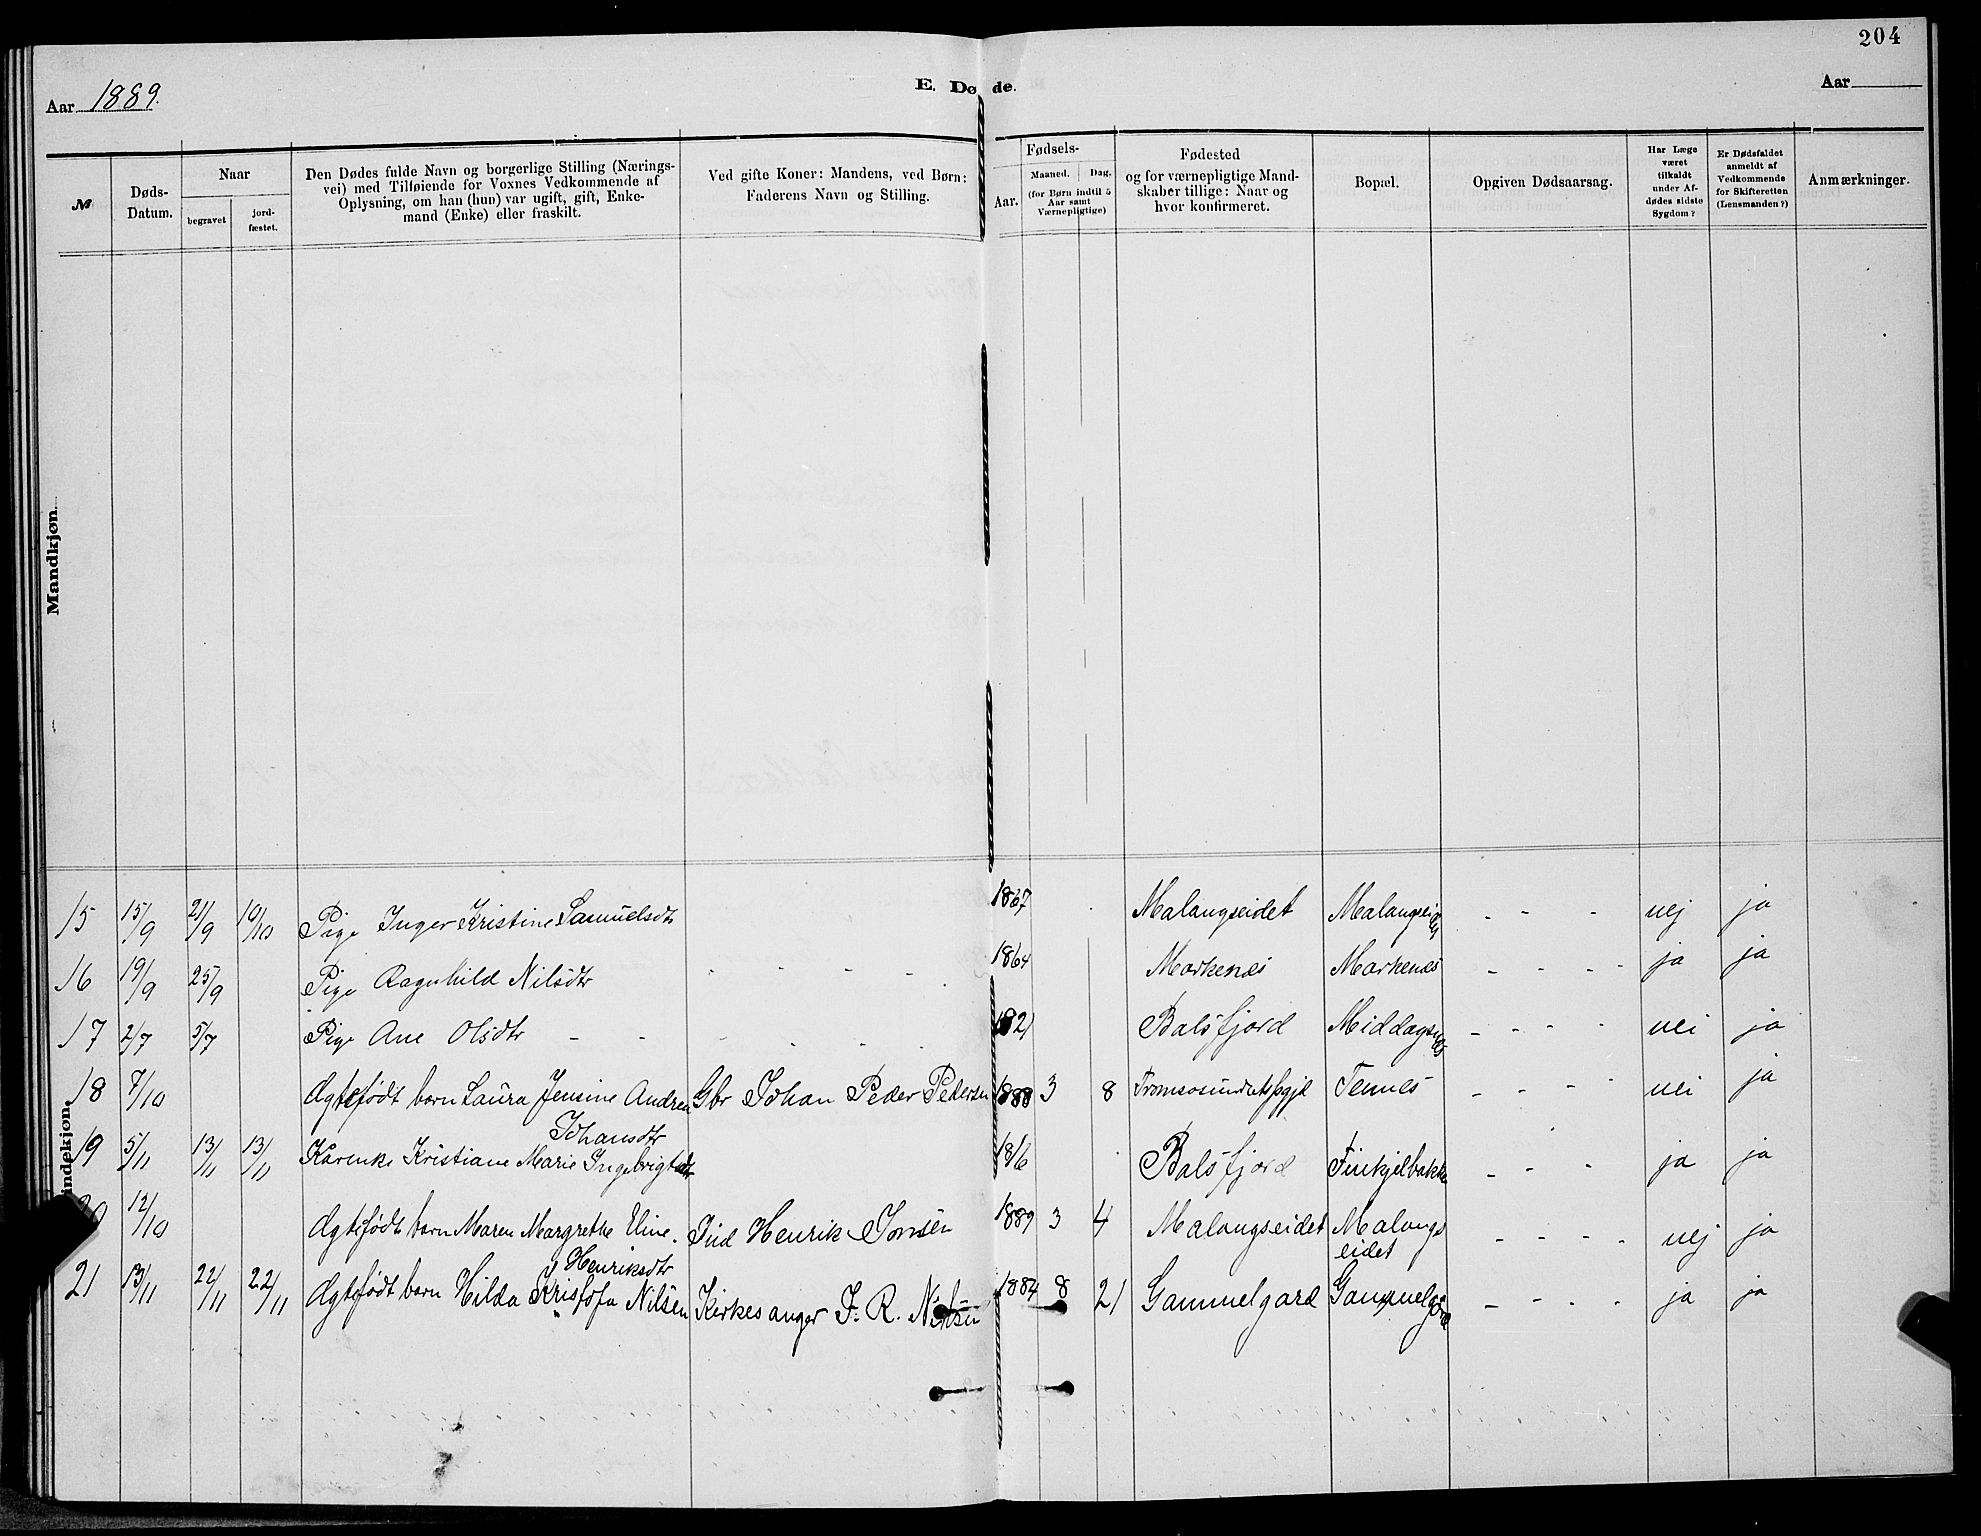 204
Aar 1889.
E. Dø de.
Aar
№
Døds-
Datum.
Naar
begravet
jord-
fæstet.
Den Dødes fulde Navn og borgerlige Stilling (Nærings-
vei) med Tilføiende for Voxnes Vedkommende af
Oplysning, om han (hun) var ugift, gift, Enke-
mand (Enke) eller fraskilt.
Ved gifte Koner: Mandens, ved Børn:
Faderens Navn og Stilling.
Fødsels-
Aar.
Maaned. Dag.
(for Børn indtil 5
Aar samt
Værnepligtige)
Fødested
og for værnepligtige Mand-
skaber tillige: Naar og
hvor konfirmeret.
Bopæl.
Opgiven Dødsaarsag.
Har Læge
været
tilkaldt
under Af-
dødes sidste
Sygdom?
Er Dødsfaldet
anmeldt af
Vedkommende
for Skifteretten
(Lensmanden?)
Anmærkninger.
Mandkjøn.
indekjøn.
15 15/9 21/9 10/10 Pige Inger Kristine Samuelsdtr 1867 Malangseidet Malangseidet - - - nej ja
16 19/9 25/9 Pige Ragnhild Nilsdtr - - - - 1864 Markenes Markenes - - - - ja ja
17 2/7 5/7 Pige Ane Olsdtr - - - - - 1821 Balsfjord Middagsnes - - - - nei ja
18 7/10 Ægtefødt barn Laura Jensine Andrea Gbr Johan Peder Pedersen 1888 3 8 Tennes - - - nei ja
Johansdtr
19 5/11 13/11 13/11 Karenke Kristiane Marie Ingebrigtsdtr 1816 Balsfjord Finkjelbakke - - - ja ja
12/10 Ægtefødt barn Maren Margrethe Eline. Ind Henrik Jonsen 1889 3 4 Malangseidet Malangs
eidet - - - - nej ja
Henriksdtr
21 13/11 22/11 22/11 Ægtefødt barn Hilda Kristofa Nilsen Kirkesanger J. R. Nilsen 1884 8 21 Gammelgard Gammelgård - - - - ja ja